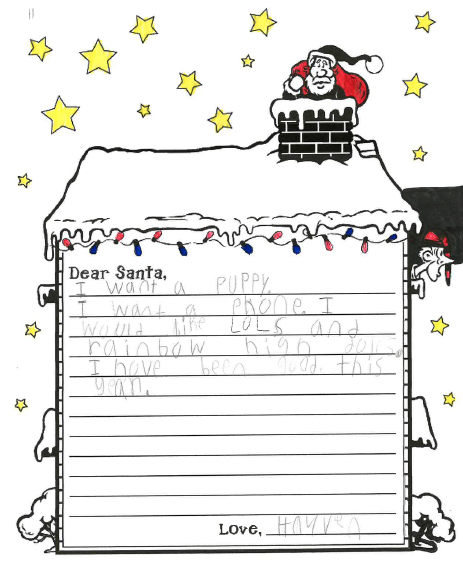 Dear Santa,
I want a puppy.
I want a phone. I
would like LOLS and
rainbow high dolls.
I have been good this
year.
Love, Hayven